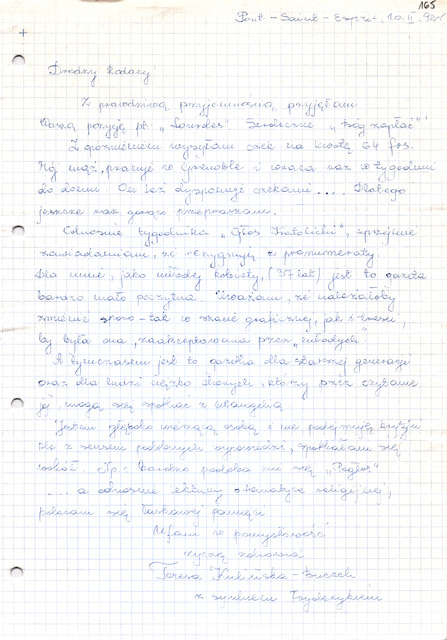 165
Pont - Saint - Esprit, 10.II.98r
+
Drodzy Rodacy!
Z prawdziwą przyjemnością przyjęłam
Waszą pozycję pt. „Lourdes". Serdeczne „Bóg zapłać"!
Z opóźnieniem wysyłam czek na kwotę 64 frs.
Mój mąż, pracuje w Grenoble i wraca raz w tygodniu
do domu. On też dysponuje czekami.... Dlatego
jeszcze raz gorąco przepraszam.
Odnośnie tygodnika „Głos Katolicki", uprzejmie
zawiadamiam, że rezygnuję z prenumeraty.
Dla mnie, jako młodej kobiety, (37 lat) jest to gazeta
bardzo mało poczytna. Uważam, że należałoby
zmienić sporo - tak w szacie graficznej, jak i treści,
by była ona „zaakceptowana przez „młodych".
A tymczasem jest to gazetka dla starszej generacji
oraz dla ludzi ciężko chorych, którzy przez czytanie
jej, mogą się spotkać z Ewangelią.
Jestem głęboko wierzącą osobą i nie podejmuję krytyki
ale z sensem podobnych wypowiedzi, spotkałam się
wokół. Np. bardzo podoba mi się „Pogłos"
.... a odnośnie lektury o tematyce religijnej,
polecam się łaskawej pamięci
Ufam w pomyślność
życzę zdrowia
Teresa
z synkiem